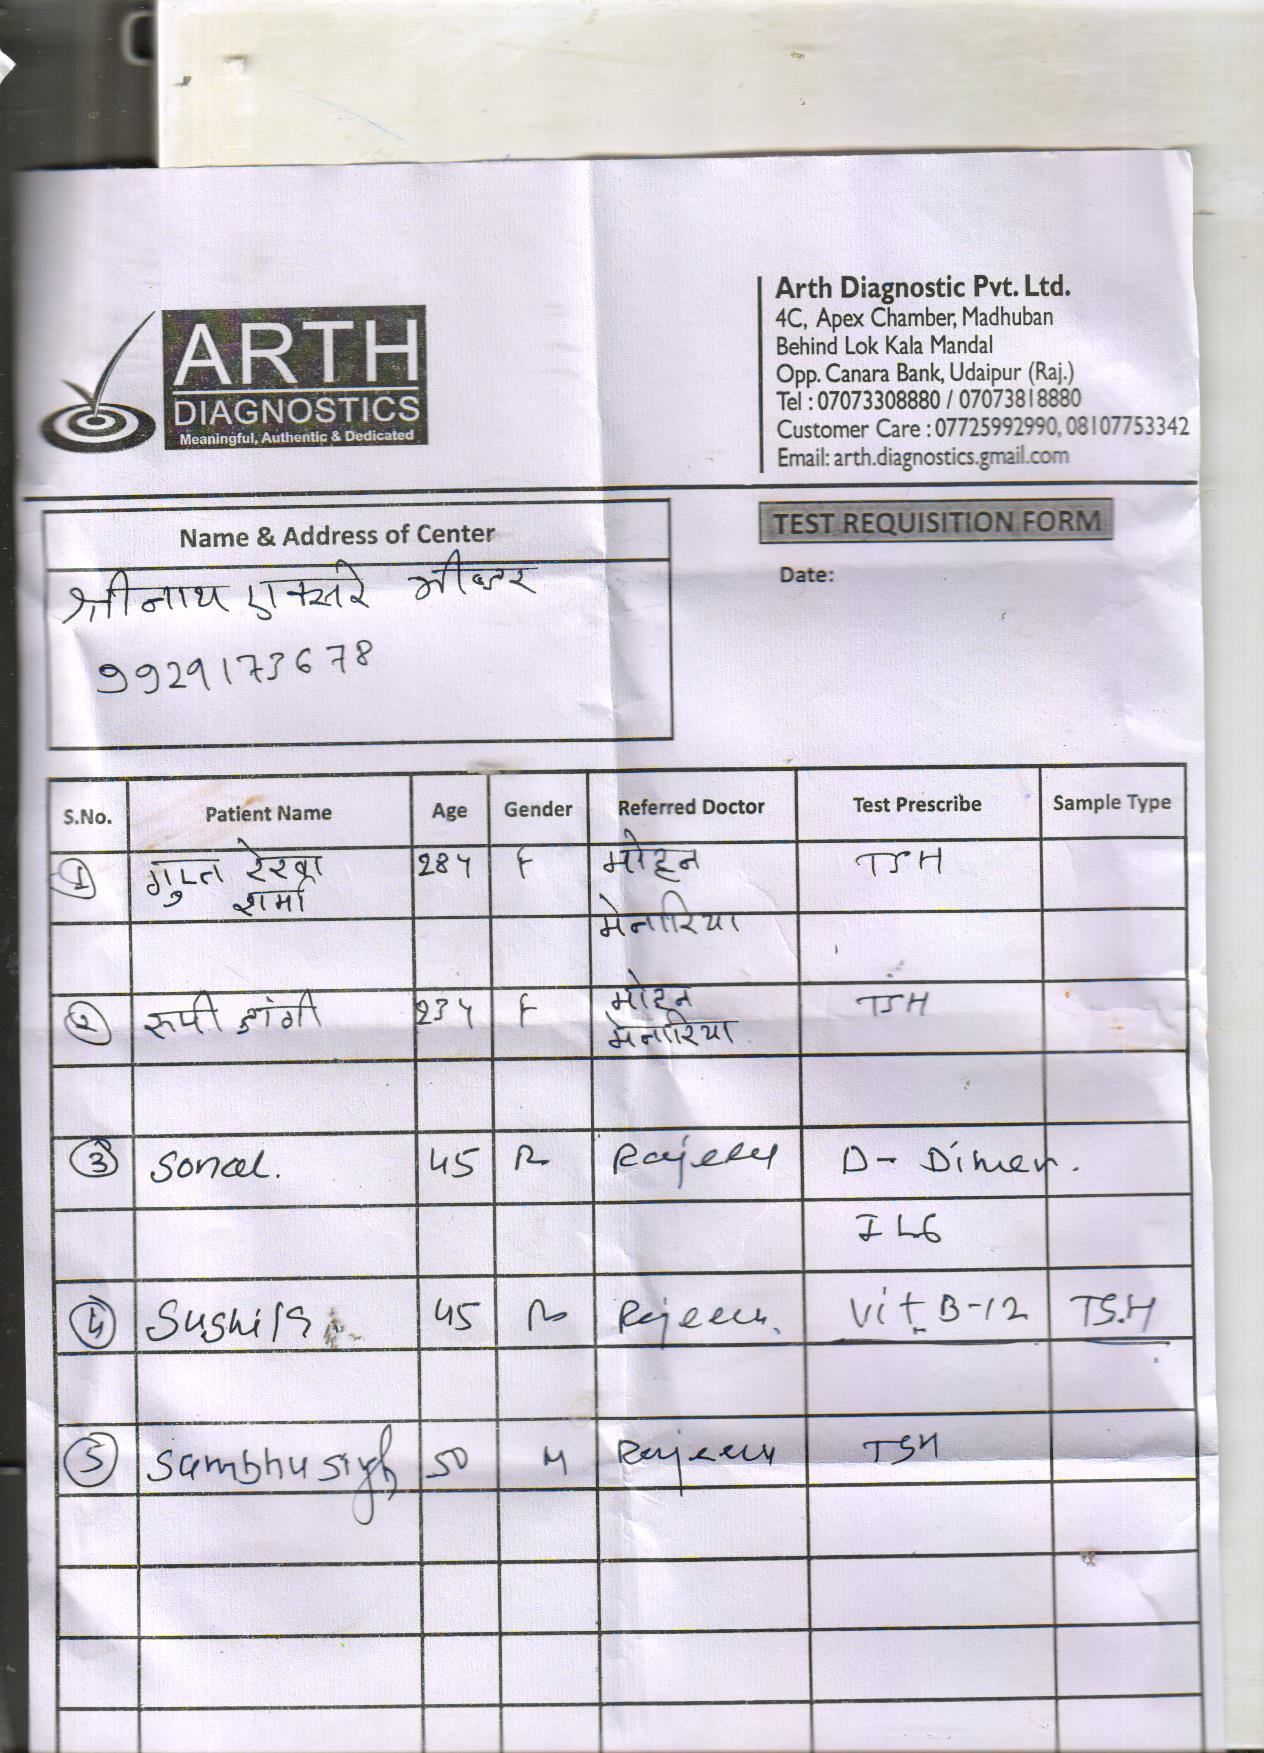 ARTH
DIAGNOSTICS
Meaningful, Authentic & Dedicated
Arth Diagnostic Pvt. Ltd.
4C, Apex Chamber, Madhuban
Behind Lok Kala Mandal
Opp. Canara Bank, Udaipur (Raj.)
Tel : 07073308880 / 07073818880
Customer Care : 07725992990, 08107753342
Email: arth.diagnostics.gmail.com
Name & Address of Center
TEST REQUISITION FORM
Date:
श्रीनाथ एक्सरे
9929173678
S.No. Patient Name Age Gender Referred Doctor Test Prescribe Sample Type
1 गुप्त रेखा 28Y F मोहन TSH
शर्मा
मेनारिया
2 रूपी डांगी 23Y F मोहन TSH
मेनारिया
3 Sonal. 45 Rajeev D-Dimer.
IL6
4 Sushila 45 Rajeev. Vit B-12 TSH
5 Sambhu sigh 50 M Rajeev TSH